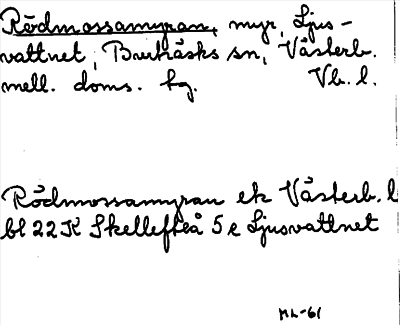 Rödmossamyran, myr, Ljus-
vattnet, Burträsks sn, Västerb.
mell. doms. hg. Vb. l.
Rödmossamyran ek Västerb. l
bl 22 K Skellefteå 5 e Ljusvattnet
ML-61